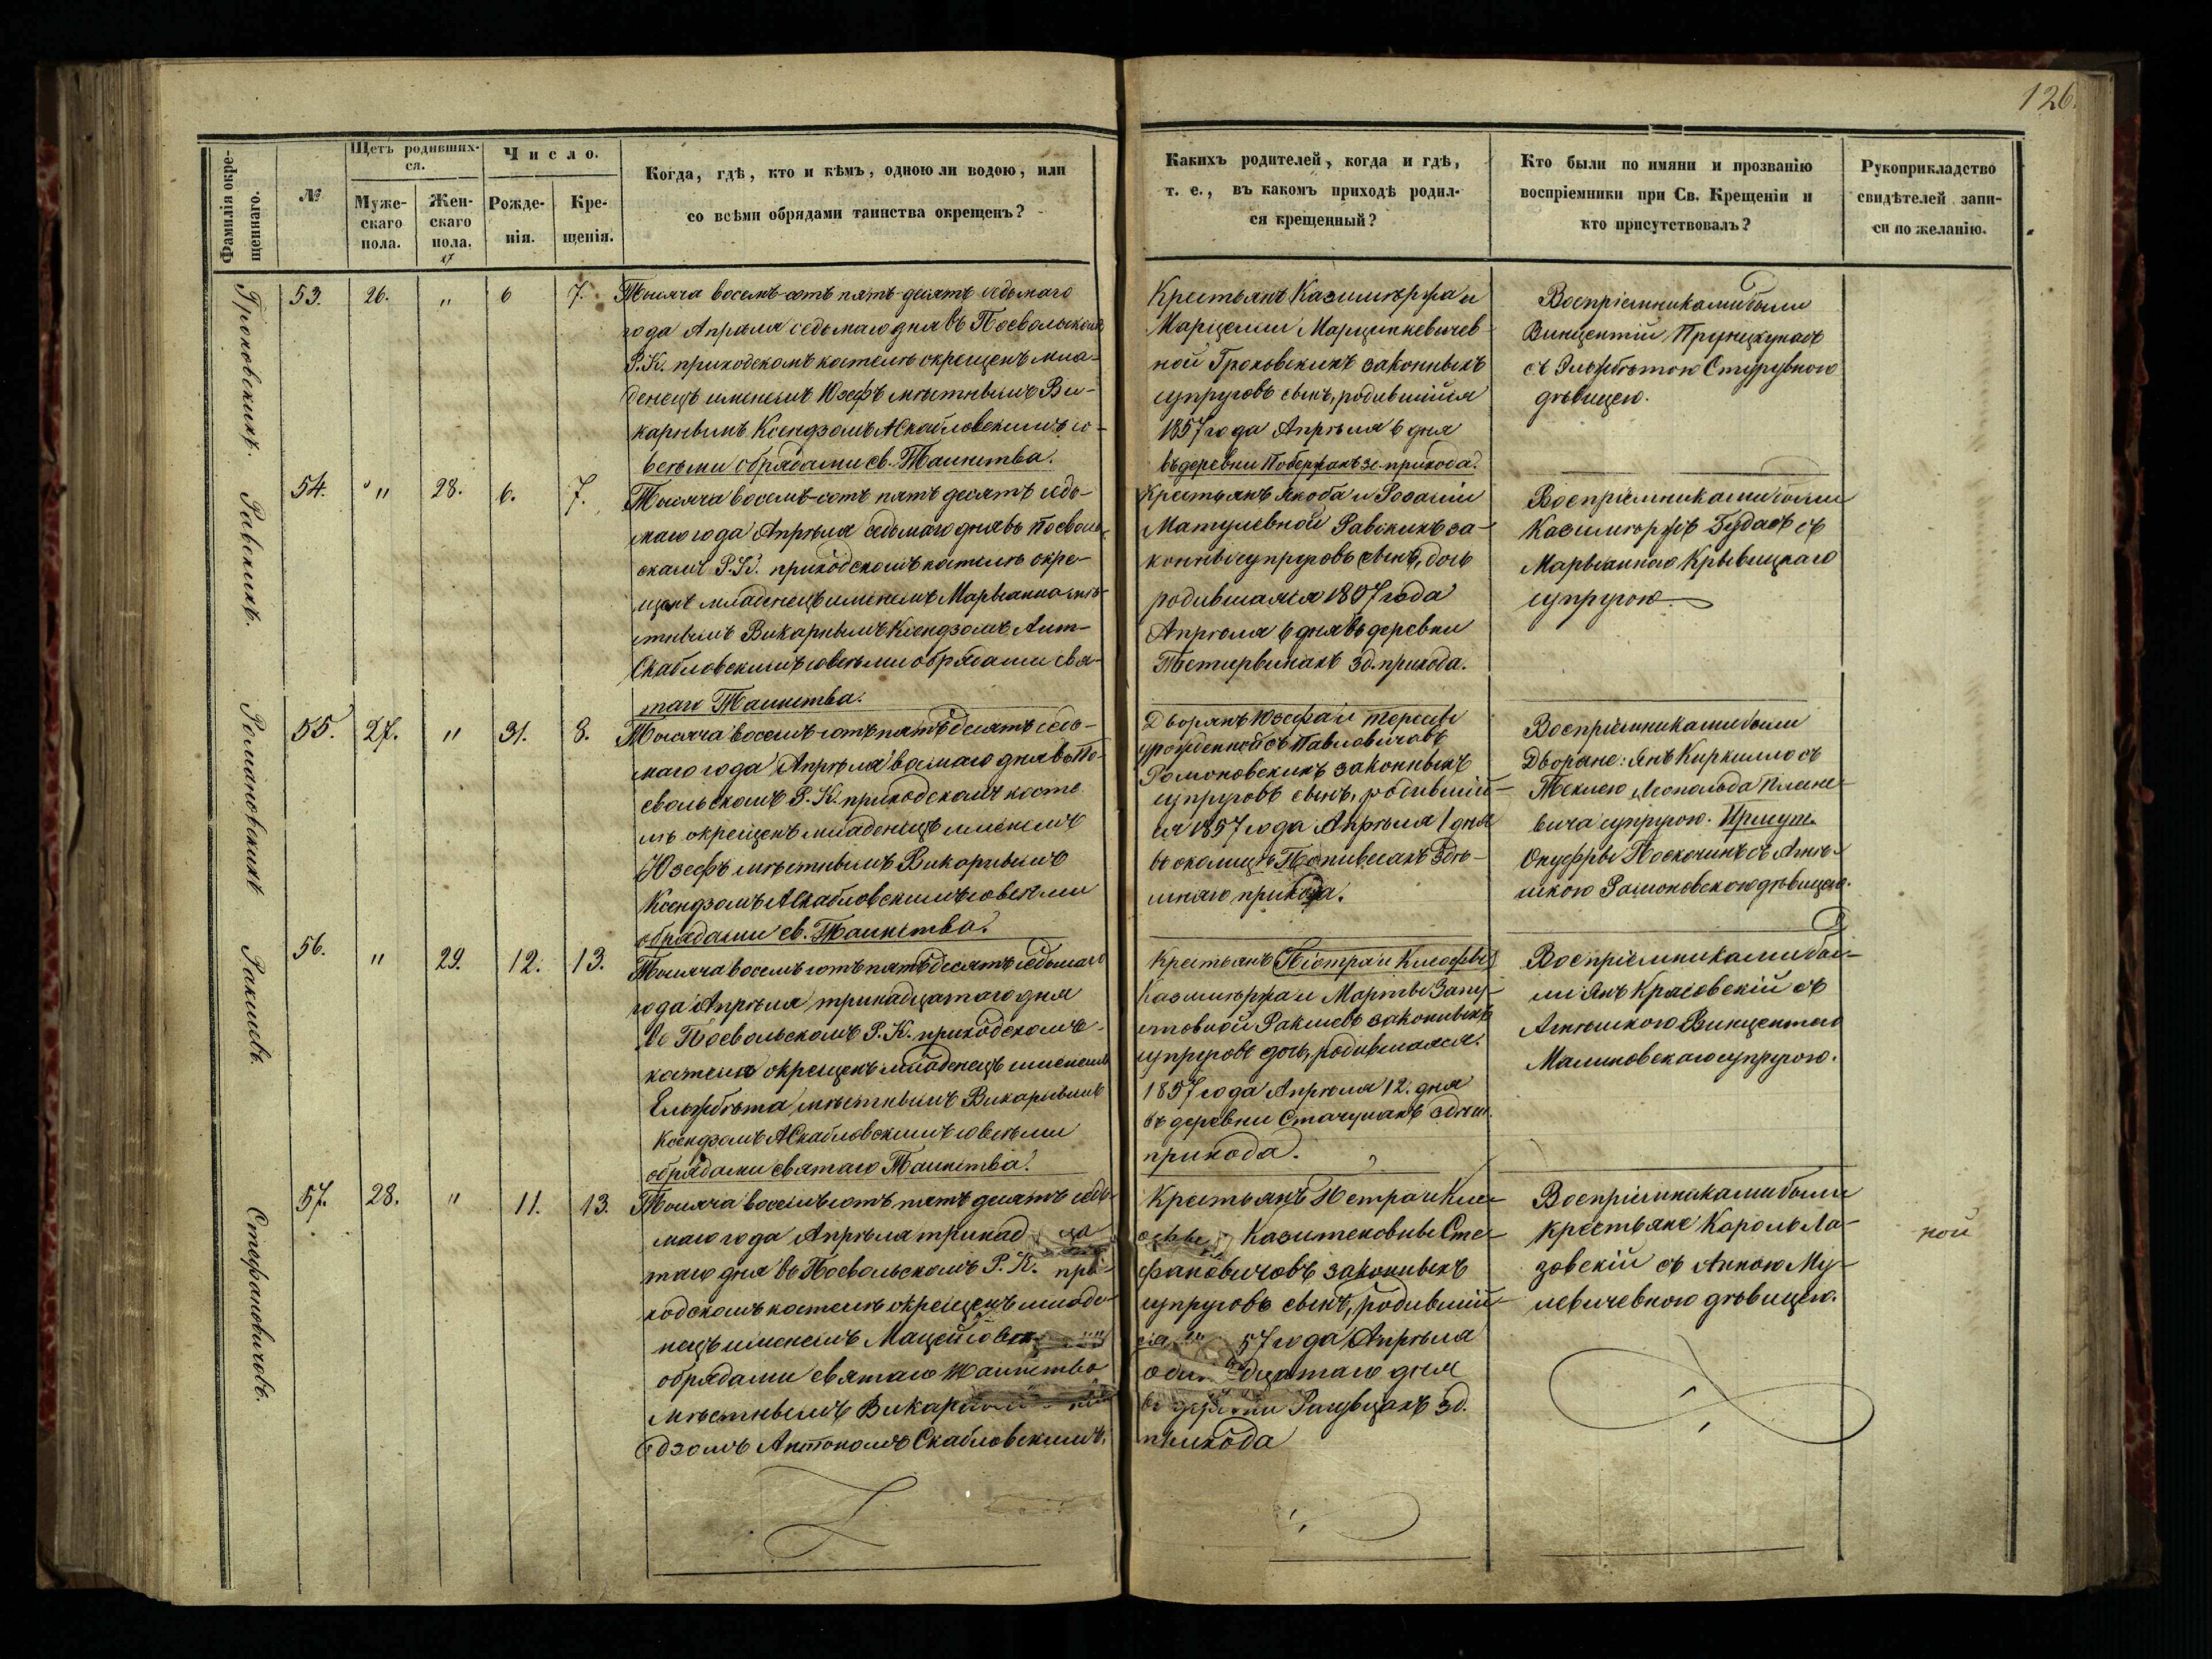 126.
Фамилія окре-
щеннаго.
№
Щетъ родивших-
ся.
Муже-
скаго
пола.
Жен-
скаго
пола.
Число.
Рожде-
нія.
Кре-
щенія.
Когда, гдѣ, кто и кѣмъ, одною ли водою, или
со всѣми обрядами таинства окрещенъ?
Какихъ родителей, когда и гдѣ,
т. е., въ какомъ приходѣ родил-
ся крещенный?
Кто были по имяни и прозванію
воспріемники при Св. Крещеніи и
кто присутствовалъ?
Рукоприкладство
свидѣтелей запи-
си по желанію.
Гроховскихъ.
53.
26.
"
6
7.
Тысяча восемь-сотъ пять-десятъ седьмаго
года Апрѣля седьмаго дня въ Посвольскомъ
Р.К. приходскомъ костелѣ окрещенъ мла-
денецъ именемъ Юзефъ мѣстнымъ Ви-
карнымъ Ксендзомъ А Скабловскимъ со
всѣми обрядами св. Таинства.
Крестьянъ Казимѣржа и
Марцелли Марцинкевичев-
ной Гроховскихъ законныхъ
супруговъ сынъ, родившійся
1857 года Апрѣля 6 дня
въ деревни зд. прихода.
Воспріемниками были
Винцентій
съ Эльжбѣтою
дѣвицею.
Равскихъ.
54.
"
28.
6.
7.
Тысяча восемь-сотъ пять десятъ седь-
маго года Апрѣля седьмаго дня въ Посволь-
скомъ Р.К. приходскомъ костелѣ окре-
щенъ младенецъ именемъ Марыанна мѣ-
стнымъ Викарнымъ Ксендзомъ Ант-
Скабловскимъ со всѣми обрядами свя-
таго Таинства.
Крестьянъ Якоба и Розаліи
Матулевной Равскихъ за-
конны супруговъ сынъ, дочь
родившаяся 1857 года
Апрѣля 6 дня въ деревни
зд. прихода.
Воспріемниками были
Казимѣржъ съ
Марыанною
супругою.
Романовскихъ
55.
27.
"
31.
8.
Тысяча восемь-сотъ пять десятъ седь-
маго года Апрѣля восмаго дня въ По-
свольскомъ Р.К. приходскомъ косте
лѣ окрещенъ младенецъ именемъ
Юзефъ мѣстнымъ Викарнымъ
Ксендзомъ А Скабловскимъ со всѣми
обрядами св. Таинства.
Дворянъ Юзефа и Терезы
урожденной съ Павловичовъ
Ромоновскихъ законныхъ
супруговъ сынъ, родившій-
ся 1857 года Апрѣля 1 дня
въ околицѣ здѣ-
шняго прихода.
Воспріемниками были
Дворяне: Янъ съ
Теклею Леопольда
вича супругою. Присут.
Онуфры съ Агнѣ-
шкою Рамоновскою дѣвицею.
Ракшевъ.
56.
"
29.
12.
13.
Тысяча восемь сотъ пять десятъ седьмаго
года Апрѣля тринадцатаго дня
въ Посвольскомъ Р.К. приходскомъ
костелѣ окрещенъ младенецъ именемъ
Ельжбѣта мѣстнымъ Викарнымъ
Ксендзомъ А Скабловскимъ со всѣми
обрядами святаго Таинства.
Крестьянъ (Піотра и Клеофы)
Казимѣржа и Марты
Ракшевъ законныхъ
супруговъ дочь, родившаяся
1857 года Апрѣля 12. дня
въ деревни здѣш.
прихода.
Воспріемниками бы-
ли Янъ Красовскій съ
Агнѣшкою Винцентаго
Малиновскаго супругою.
Стефановичовъ.
57.
28.
"
11.
13.
Тысяча восемь сотъ пять десятъ седь-
маго года Апрѣля тринад ца
таго дня въ Посвольскомъ Р.К. при-
ходскомъ костелѣ окрещенъ младе-
нецъ именемъ Мацей со
обрядами святаго таинства
мѣстнымъ
дзомъ Антономъ Скабловскимъ.
Крестьянъ Петра и Кле-
Сте-
фановичовъ законныхъ
супруговъ сынъ, родившій-
ся 57 года Апрѣля
дцатаго дня
зд.
прихода
Воспріемниками были
крестьяне Кароль Ла-
зовскій съ Анною Му-
левичевною дѣвицею.
ной